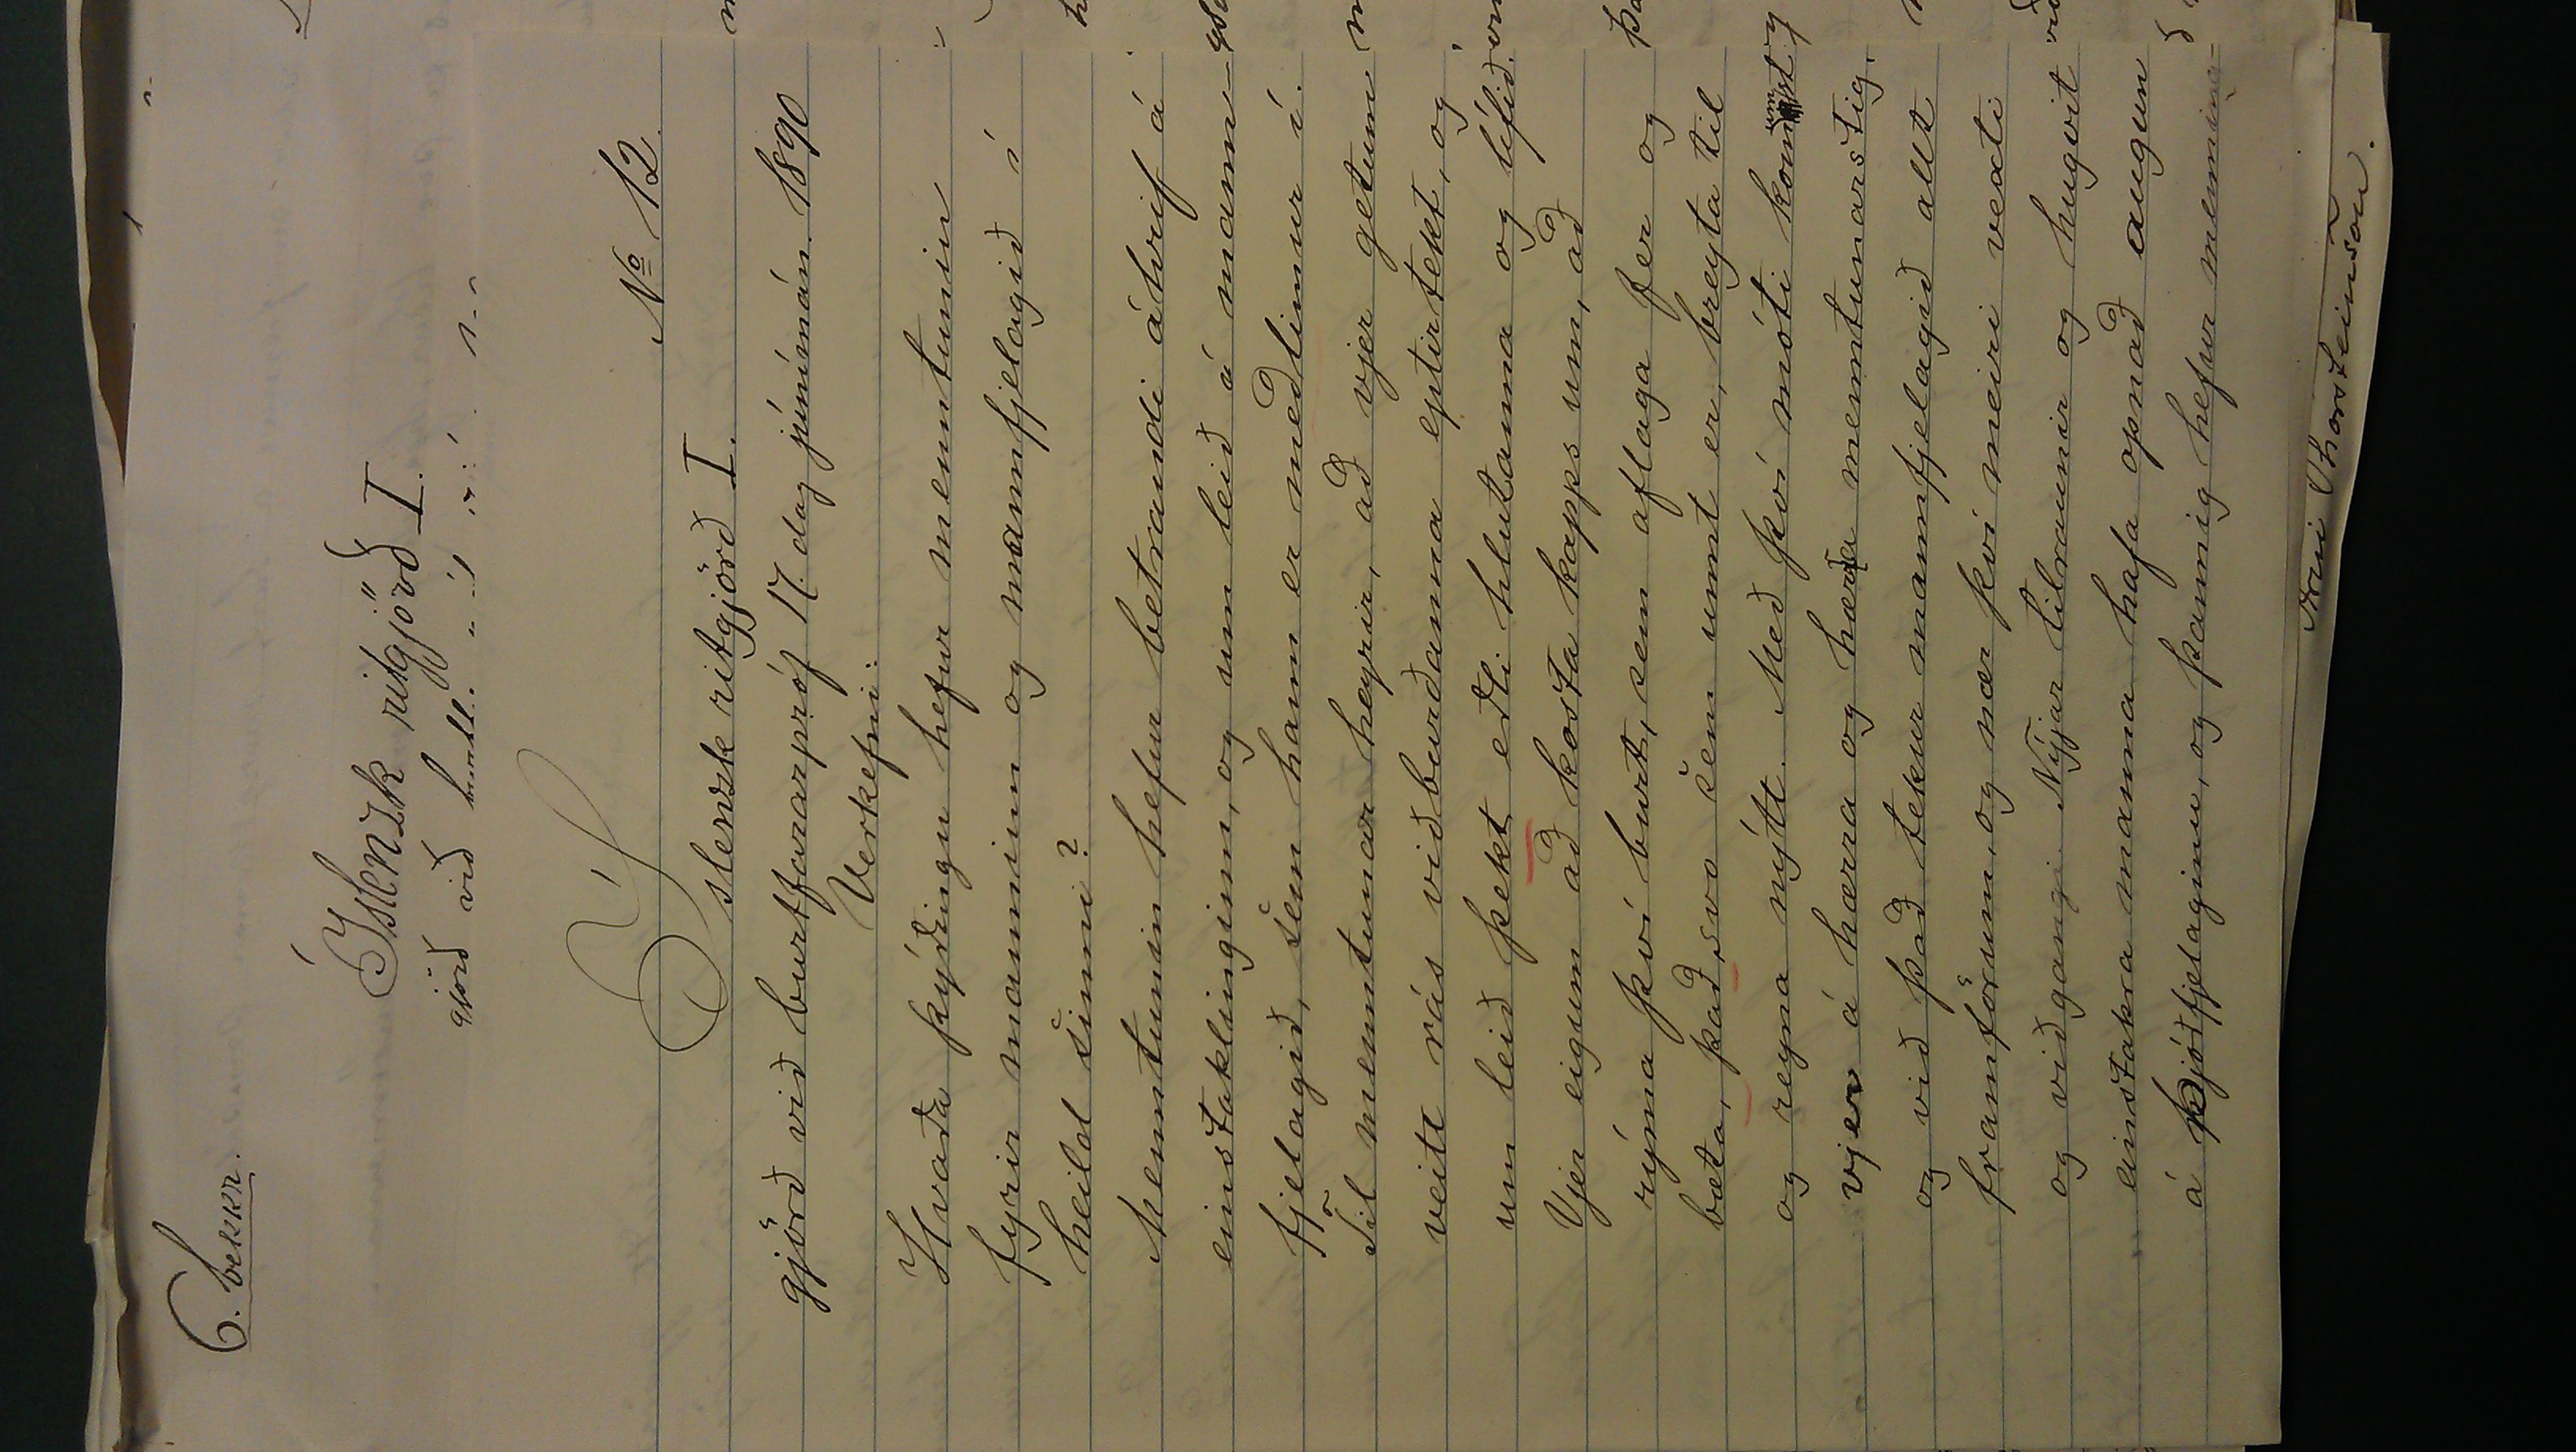 6. bekkr.
Íslenzk ritgjörð I.
gjörð við burtf.
Nº 12.
Íslenzk ritgjörð I.
gjörð við burtfararpróf 17. dag júnímán. 1890
Verkefni:
Hvaða þýðingu hefur menntunin
fyrir manninn og mannfjelagið í
heild sinni?
Menntunin hefur betrandi áhrif á
einstaklinginn, og um leið á mann-
fjelagið, sem hann er meðlimur í.
Til menntunar heyrir, að vjer getum
veitt rás viðburðanna eptirtekt, og
um leið þekt eðli hlutanna og lífið.
Vjer eigum að kosta kapps um, að
rýma því burt, sem aflaga fer og
bæta, það, svo sem unnt er, breyta til
og reyna nýtt. Með því móti komumst
vjer á hærra og hærra menntunarstig,
og við það tekur mannfjelagið allt
framförum, og nær því meiri vexti
og viðgangi. Nýjar tilraunir og hugvit
einstakra manna hafa opnað augun
á þjóðfjelaginu, og þannig hefur menning-
Árni Thorsteinson.